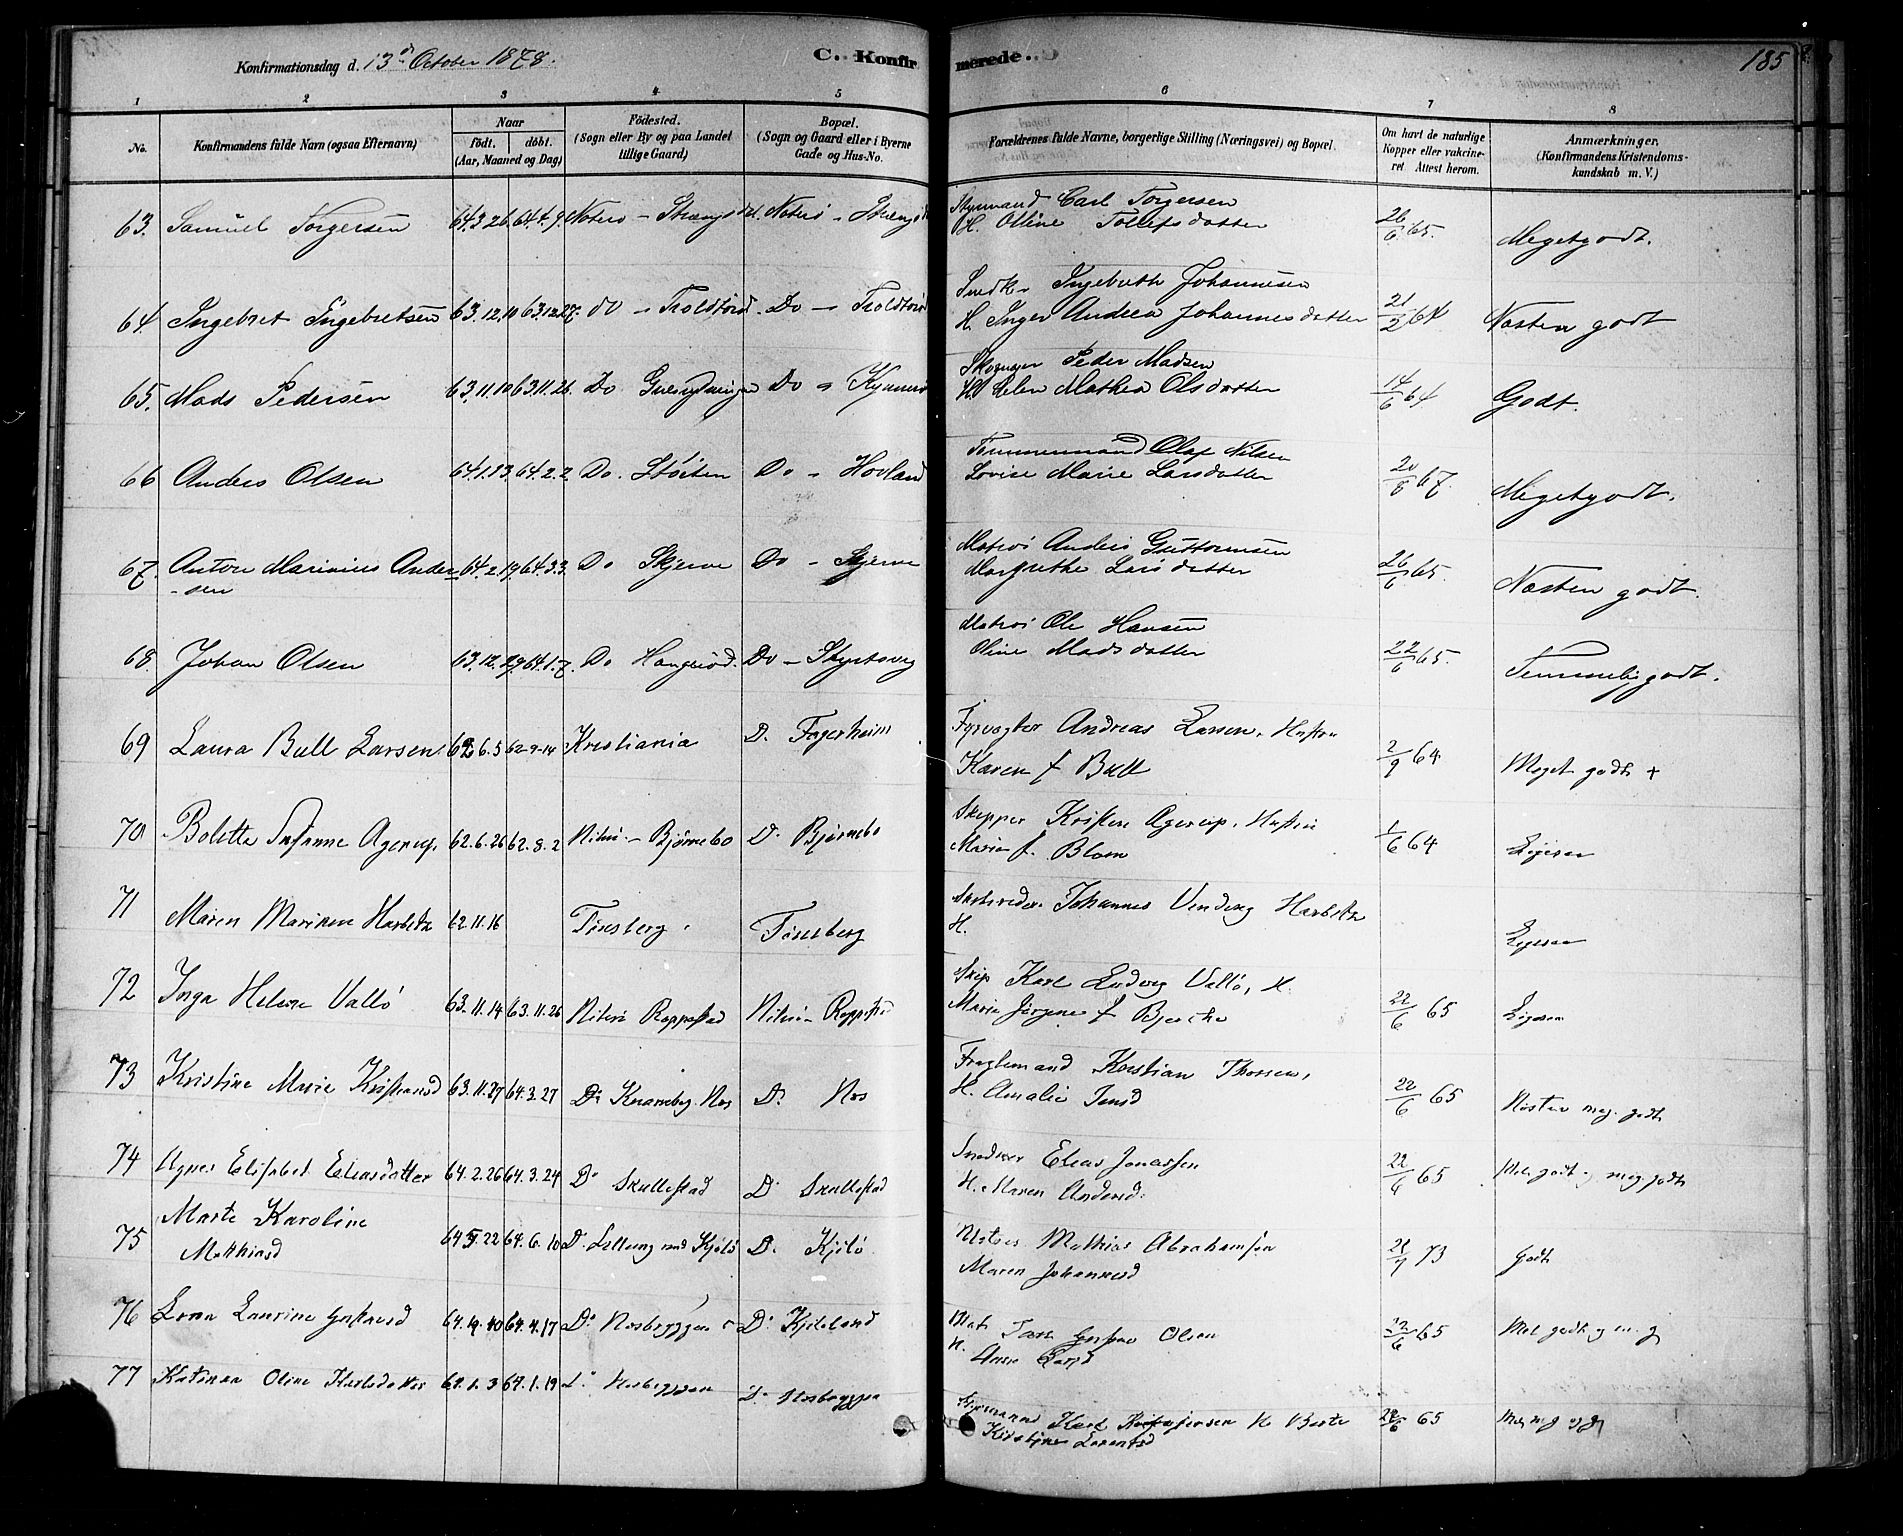 Konfirmationsdag d. 13de October 1878.
C. Konfirmerede.
185
1 2 3 4 5 6 7 8
No.
Konfirmandens fulde Navn (ogsaa Efternavn)
Naar
født. døbt.
(Aar, Maaned og Dag)
Fødested.
(Sogn eller By og paa Landet
tillige Gaard)
Bopæl.
(Sogn og Gaard eller i Byerne
Gade og Hus-No.
Forældrenes fulde Navne, borgerlige Stilling (Næringsvei) og Bopæl.
Om havt de naturlige
Kopper eller vakcine-
ret Attest herom.
Anmærkninger.
(Konfirmandens Kristendoms-
kundskab m. V.)
63. Samuel Torgersen 64.3.26. Nøterø Nøterø Styrmand Carl Torgersen
H. Olline Tollefsdatter 26/6 65. Megetgodt.
64 Ingebret Ingebretsen 63.12.10 63.12.27. do - Troldsrød. Do - Ingebreth Johannesen
H. Inger Andrea Johannesdatter 21/2 64 Næsten godt
65. Mads Pedersen 63.11.10 63.11.26. Do Do Peder Madsen
Helen Mathea Olsdatter 14/6 64 Godt.
66 Anders Olsen 64.1.13. 64.2.2. Do. Støiten Do - Hovland Tømmermand Olaf Nilsen
Lovise Marie Larsdatter 20/8 67. Megetgodt.
67. Anton Marinius Ander
-sen 64.2.19. 64.3.3. Do Skjerve Do - Skjerve Matros Anders Guttormsen
Margrethe Larsdatter 26/6 65. Næsten godt.
68. Johan Olsen 63.12.29. 64.1.7. Do Do - Matros Ole Hansen
Oline Madsdatter 22/6 65. Temmelig godt.
69 Laura Bull Larsen 62.6.5 62-9-14 Kristiania D. Fagerheim Fyrvogter Andreas Larsen, Hustru
Karen f Bull 2/9 64 Meget godt +
70 Bolette Susanne Agerup. 62.6.26 62.8.2 Nøterø - Bjørnebo D. Bjørnebo Skipper Kristen Agerup, Hustru
Marie f. Blom 1/6 64 Ligesaa
71 Maren Marinne Harbitz 62.11.16 Tønsberg Tønsberg Skibsreder Johannes Harbitz
H. Ligesaa
72 Inga Helene Vallø 63.11.14 63.11.26 Nøterø Roppestad Nøterø Skip Karl Ludvig Vallø, H.
Marie Jørgene f Bjerche 22/6 65 Ligesaa
73 Kristine Marie Kristiansd 63.11.27 64.3.27 Do Næs D. Næs Kristian Thorsen,
H. Amalie Jensd 22/6 65 Næsten meg. godt
74 Agnes Elisabet Eliasdatter 64.2.26 64.3.24 Do Skallestad D. Skallestad Snedker Elias Jonassen
H. Maren Andersd. 22/6 65 Mel godt og meg. godt
75 Marte Karoline
Mathiasd 64.5.22 64.6.10 D. ved Kjølø D. Kjølø Matros Mathias Abrahamsen
Maren Johannesd 21/7 73 Godt
76 Laurine Gustavsd 64.4.17 Do Næsbryggen D. Mat Gustav Olsen
H. Anne Larsd 22/6 65 Mel godt og m. g
77 Oline Karlsdatter 64.1.3 64.1.19 Do Næsbryggen D. Næsbryggen Styrmand Karl
Kirstine Larentsd 22/6 65 Mel m g og g